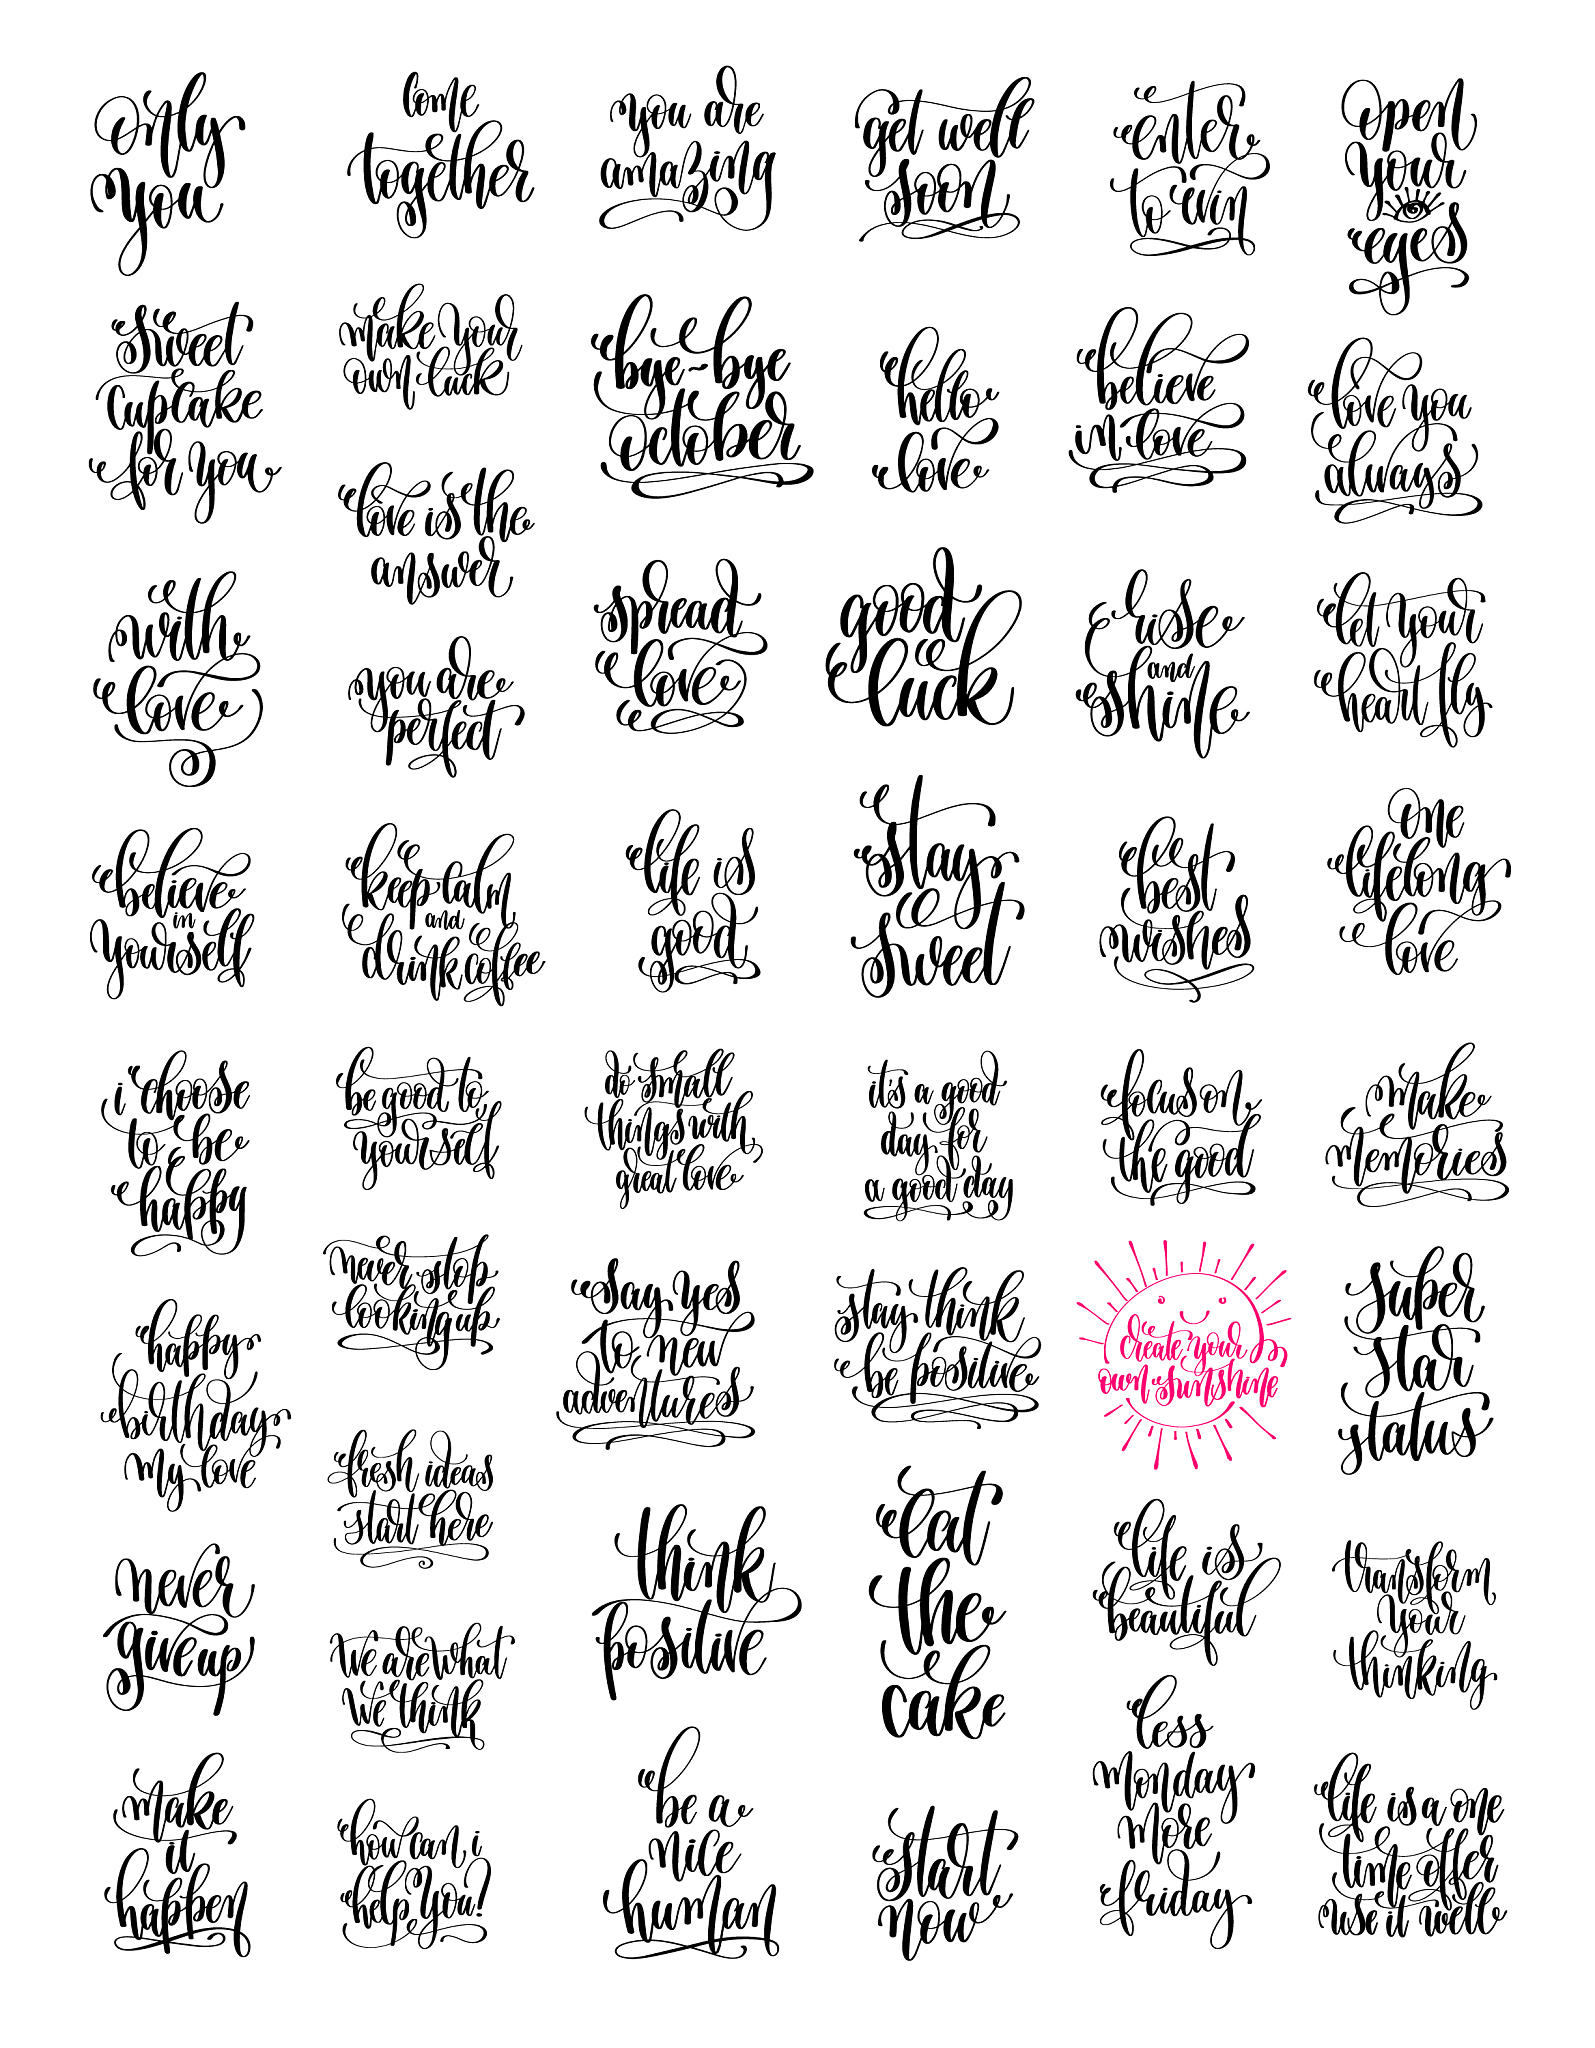 only
you
come
together
you are
amazing
get well
soon
enter
to win
open
your
eyes
sweet
cupcake
for you
make your
own luck
bye-bye
october
hello
love
believe
in love
love you
always
love is the
answer
with
love
you are
perfect
spread
love
good
luck
rise
and
shine
let your
heart fly
believe
in
yourself
keep calm
and
drink coffee
life is
good
stay
sweet
best
wishes
one
lifelong
love
i choose
to be
happy
be good to
yourself
do small
things with
great love
it's a good
day for
a good day
focus on
the good
make
memories
never stop
looking up
say yes
to new
adventures
stay think
be positive
create your
own sunshine
super
star
status
happy
birthday
my love
fresh ideas
start here
think
positive
eat
the
cake
life is
beautiful
transform
your
thinking
never
give up
we are what
we think
less
monday
more
friday
make
it
happen
how can i
help you?
be a
nice
human
start
now
life is a one
time offer
use it well